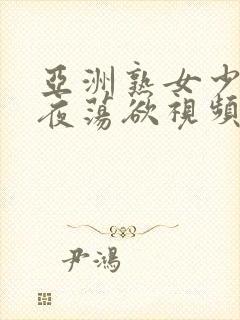 亞洲熟女少
夜蕩欲視頻
尹鴻